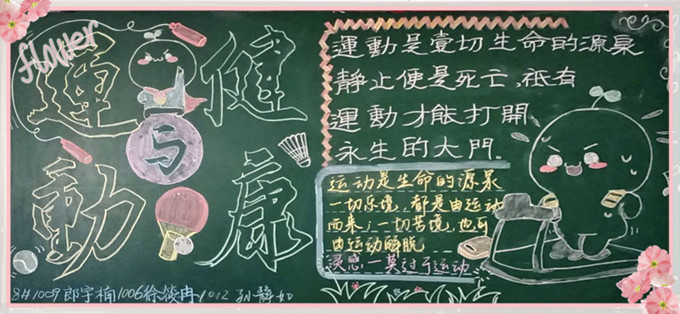 flower
運動
与
健康
運動是壹切生命的源泉
靜止便是死亡、祗有
運動才能打開
永生的大門。
运动是生命的源泉
一切乐境，都是由运动
而来；一切苦境，也可
由运动解脱
灵感一莫过于运动
8#1009郎宇楠1006徐筱冉1012 孙静如